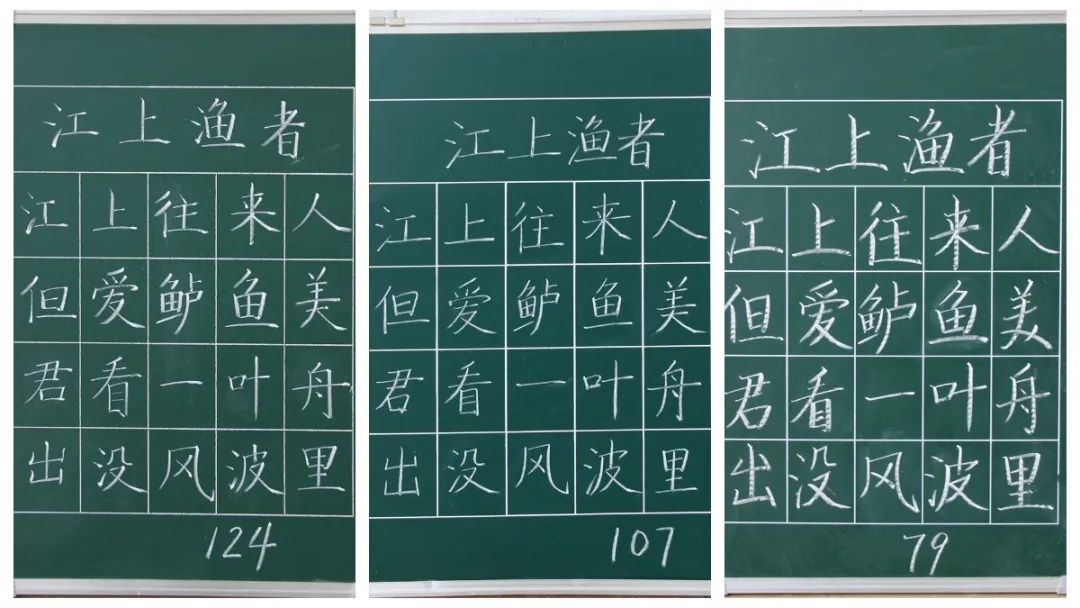 江上渔者
江上往来人
但爱鲈鱼美
君看一叶舟
出没风波里
124
江上渔者
江上往来人
但爱鲈鱼美
君看一叶舟
出没风波里
107
江上渔者
江上往来人
但爱鲈鱼美
君看一叶舟
出没风波里
79